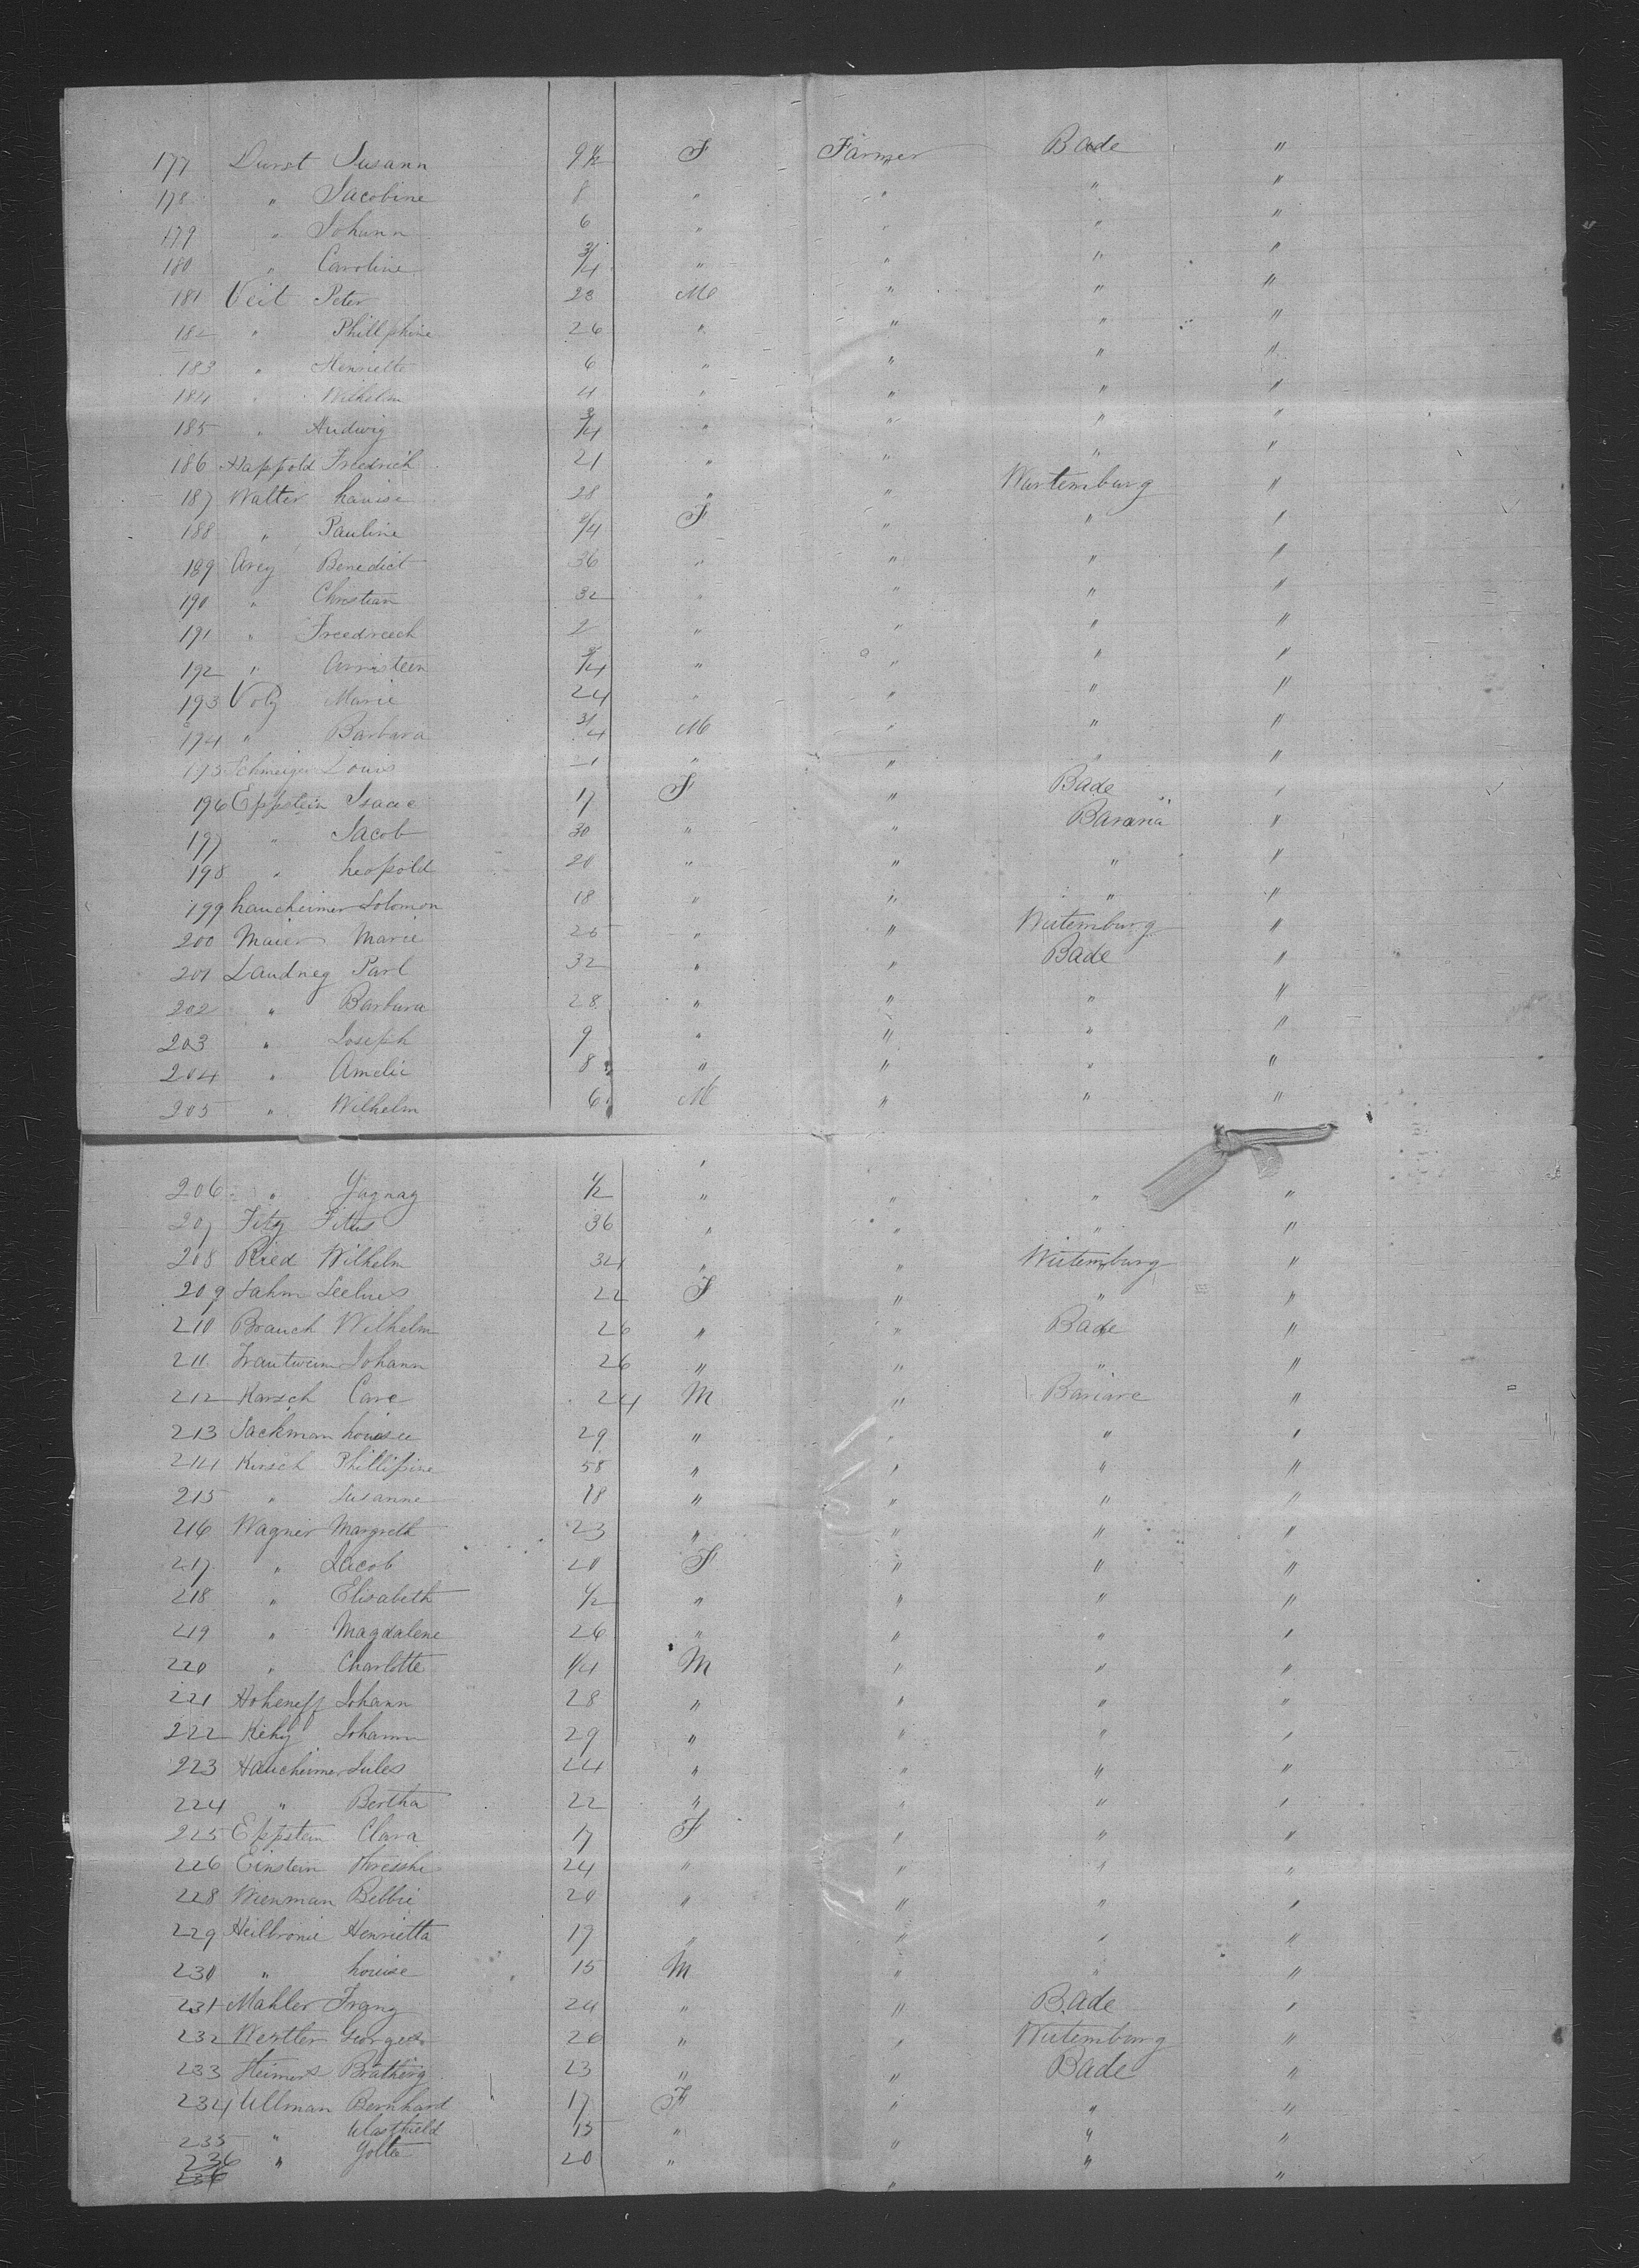 177 Durst Susann 9 1/2 F Farmer Bade "
178 " Jacobine 8 " " " "
179 " Johann 6 " " " "
180 " Caroline 3/4 " " " "
181 Veit Peter 28 M " " "
182 " Phillphine 26 " " " "
183 " Henriette 6 " " " "
184 " Wilhelm 4 " " " "
185 " Hudwig 3/4 " " " "
186 Happold Freedrich 21 " " " "
187 Walter Louise 28 " " Wurtemburg "
188 " Pauline /4 F " " "
189 Arey Benedict 36 " " " "
190 " Christian 32 " " " "
191 " Freedreech 2 " " " "
192 " 3/4 " " " "
193 Volz Marie 24 " " " "
194 " Barbara 3/4 M " " "
195 Schmeiger Louis 1 " " " "
196 Eppstein Isaac 17 F " Bade "
197 " Jacob 30 " " Bavaria "
198 " Leopold 20 " " " "
199 Laucheimer Solomon 18 " " " "
200 Maier Marie 25 " " Wutemburg "
201 Landweg Parl 32 " " Bade "
202 " Barbara 28 " " " "
203 " Joseph 9 " " " "
204 " Amelie 8 " " " "
205 " Wilhelm 6 M " " "
206 " 1/2 " " " "
207 Fitz Titus 36 " " " "
208 Ried Wilhelm 34 " " Wutemburg "
209 Sahm 22 F " " "
210 Brauch Wilhelm 26 " " Bade "
211 Trautweim Johann 26 " " " "
212 Karsch Care 24 M " Bariare "
213 Sackman Louisee 29 " " " "
214 Kirsch Phillipine 58 " " " "
215 " Susanne 18 " " " "
216 Wagner Margreth 23 " " " "
217 " Jacob 20 F " " "
218 " Elisabeth 1/2 " " " "
219 " Magdalene 26 " " " "
220 " Charlotte 1/4 M " " "
221 Hoheneff Johann 28 " " " "
222 Kehy Johann 29 " " " "
223 Haucheimer Jules 24 " " " "
224 " Bertha 22 " " " "
225 Eppstein Clara 17 F " " "
226 Einstein 24 " " " "
228 Wienman Bebbie 20 " " " "
229 Heilbronie Henrietta 19 " " " "
230 " Louise 15 M " " "
231 Mahler Franz 24 " " Bade "
232 Wertler Georges 26 " " Wutemburg "
233 Heimers 23 " " Bade "
234 Ullman Bernhard 17 F " " "
235 " 15 " " " "
236 " Yotte 20 " " " "
236